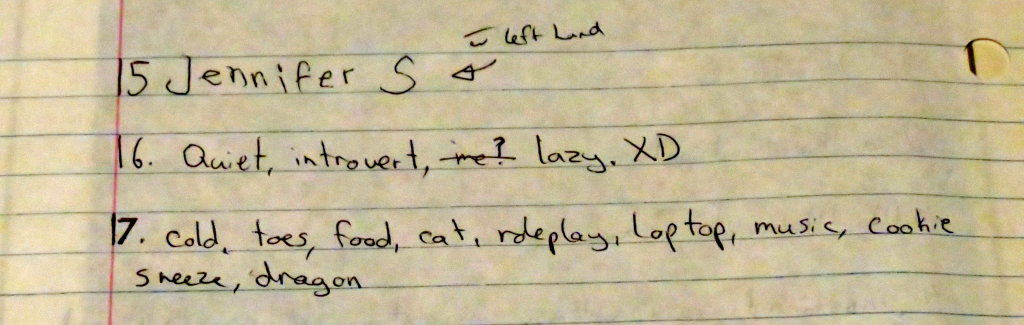 left hand
15 Jennifer S
16. Quiet, introvert, me? lazy. XD
17. cold, toes, food, cat, roleplay, laptop, music, cookie
sneeze, dragon